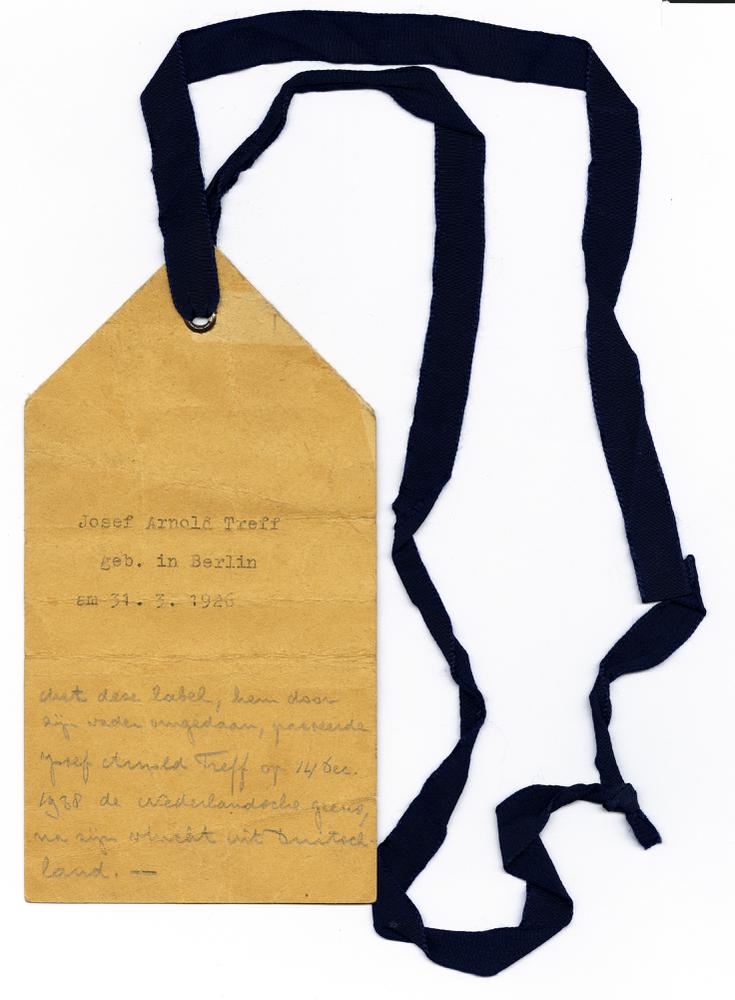 Josef Arnold Treff
geb. in Berlin
am 31. 3. 1926
Met deze label, hem door
zijn vader omgedaan, passeerde
Josef Arnold Treff op 14 Dec.
1938 de Nederlandsche grens,
na zijn vlucht uit Duitsch-
land. —